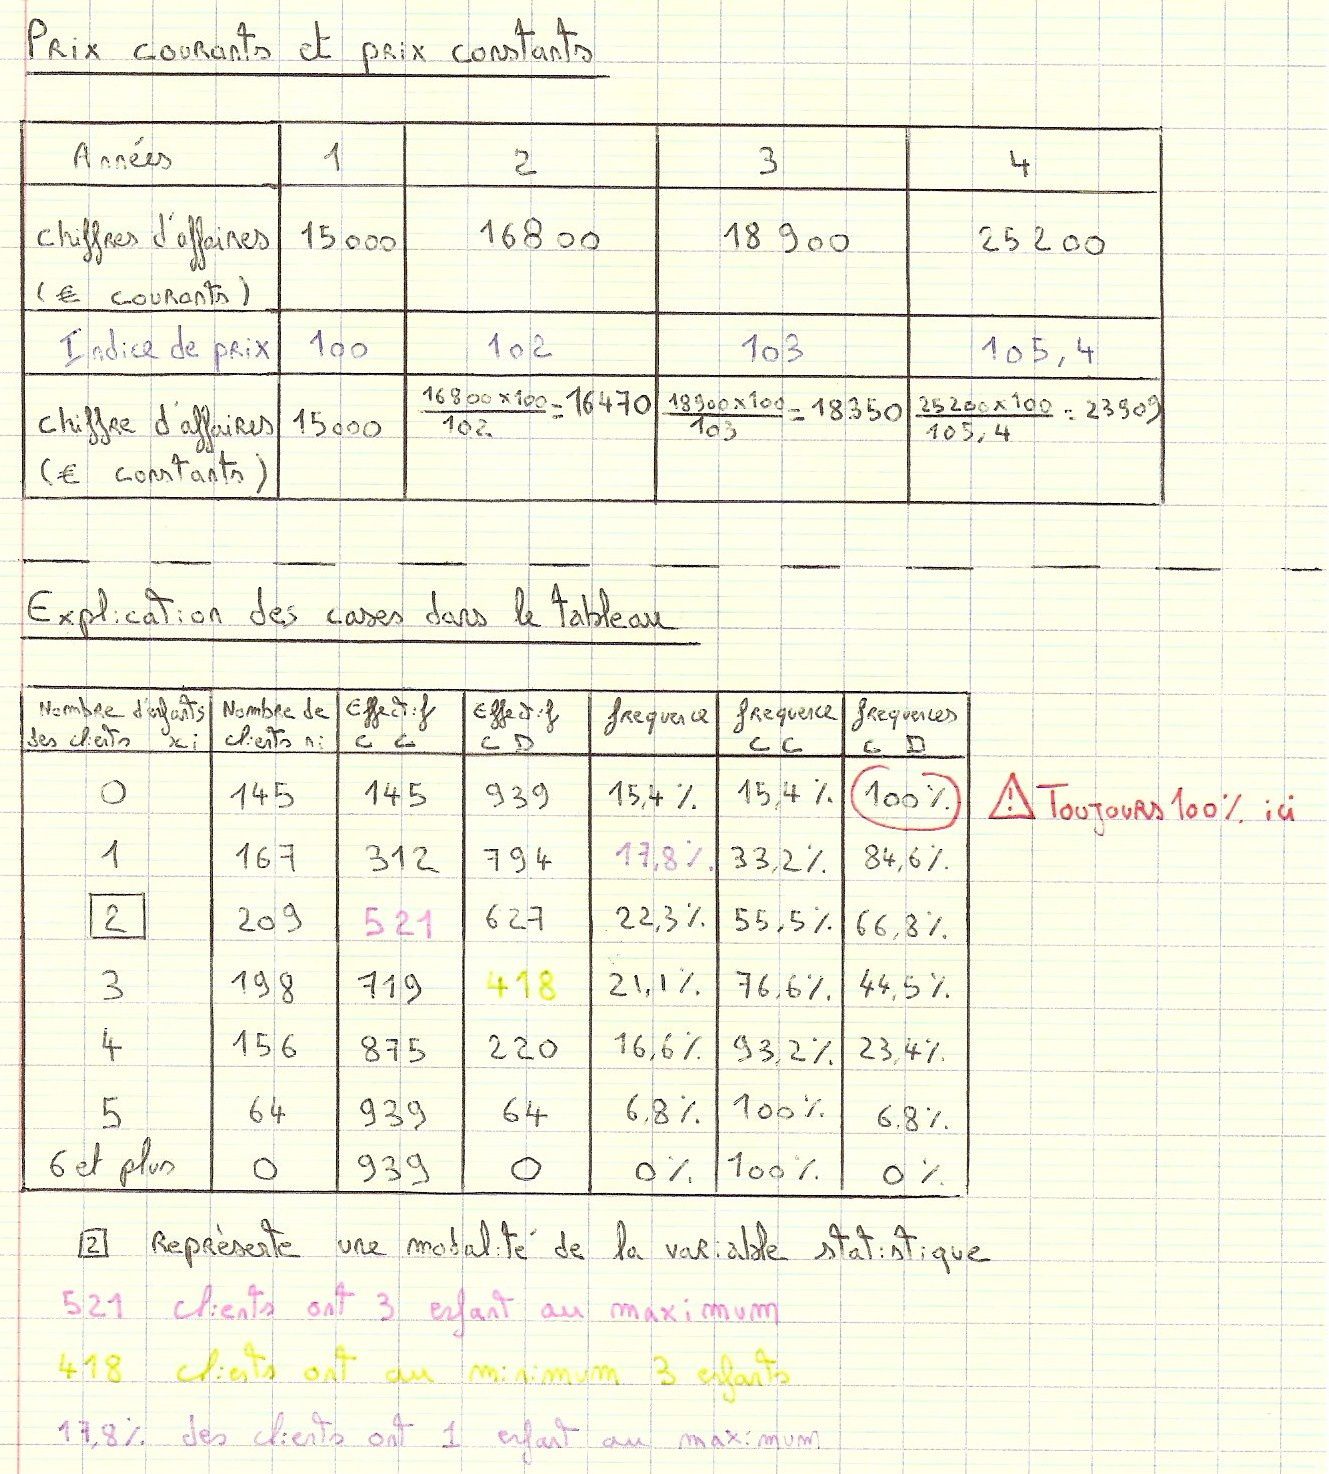 Prix courants et prix constants
Années 1 2 3 4
chiffres d'affaires 15000 16800 18900 25200
(€ courants)
Indice de prix 100 102 103 105,4
16800x100 = 16470 18900x100 = 18350 25200x100 = 23909
chiffre d'affaires 15000 102 103 105,4
(€ constants)
Explication des cases dans le tableau
Nombre d'enfants Nombre de Effectif Effectif frequence frequence frequences
des clients xi clients ni C C C D C C C D
0 145 145 939 15,4% 15,4% 100% ! Toujours 100% ici
1 167 312 794 17,8% 33,2% 84,6%
2 209 521 627 22,3% 55,5% 66,8%
3 198 719 418 21,1% 76,6% 44,5%
4 156 875 220 16,6% 93,2% 23,4%
5 64 939 64 6,8% 100% 6,8%
6 et plus 0 939 0 0% 100% 0%
2 Représente une modalité de la variable statistique
521 clients ont 3 enfant au maximum
418 clients ont au minimum 3 enfants
17,8% des clients ont 1 enfant au maximum